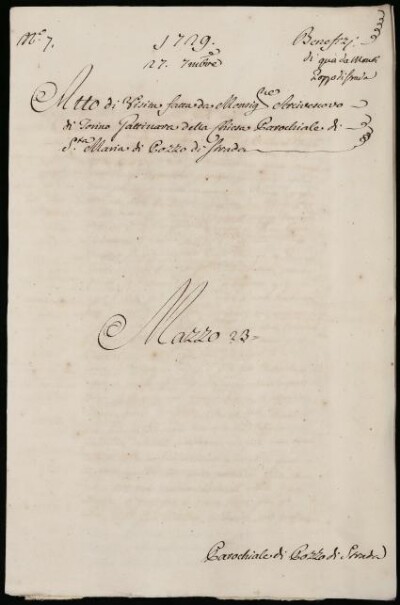 N.º 7.
1729.
27. 7mbre
Benefizj.
di qua da Monti
Pozzo di Strada
Atto di Visita fatta da Monsig.re Arcivescovo
di Torino Gattinara della Chiesa Parochiale di
S.ta Maria di Pozzo di Strada
Mazzo 23=
Parochiale di Pozzo di Strada